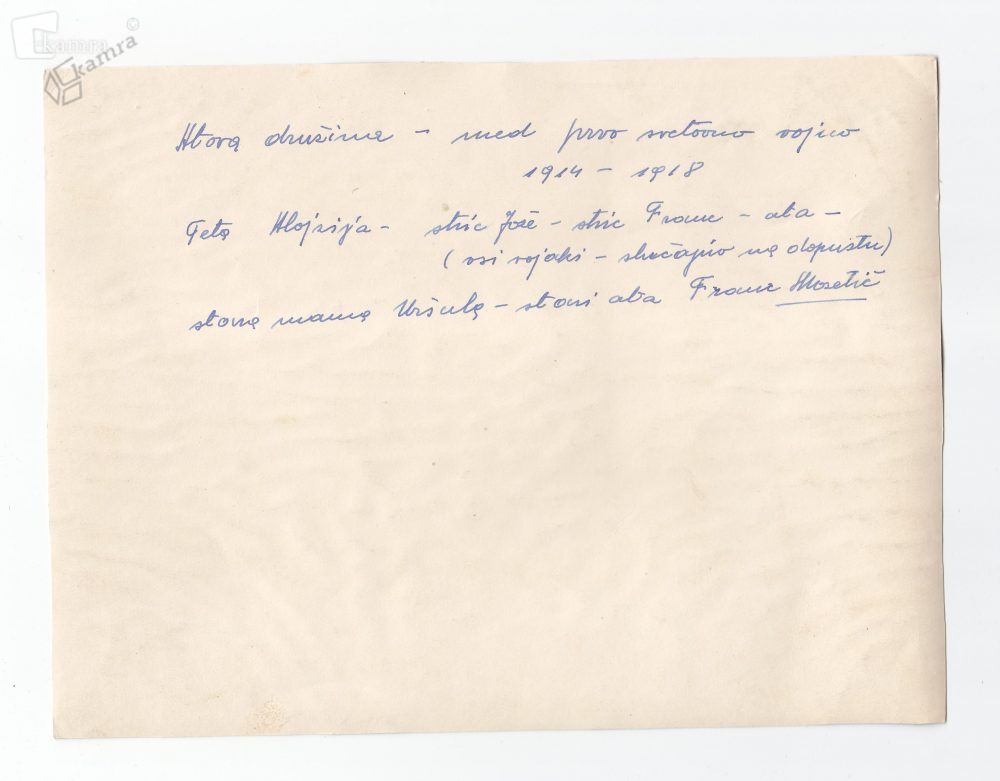 kamra
kamra ©
Atova družina – med prvo svetovno vojno
1914 – 1918
Teta Alojzija – stric Jože – stric Franc – ata –
(vsi vojaki – slučajno na dopustu)
stara mama Uršula – stari ata Franc Mozetič